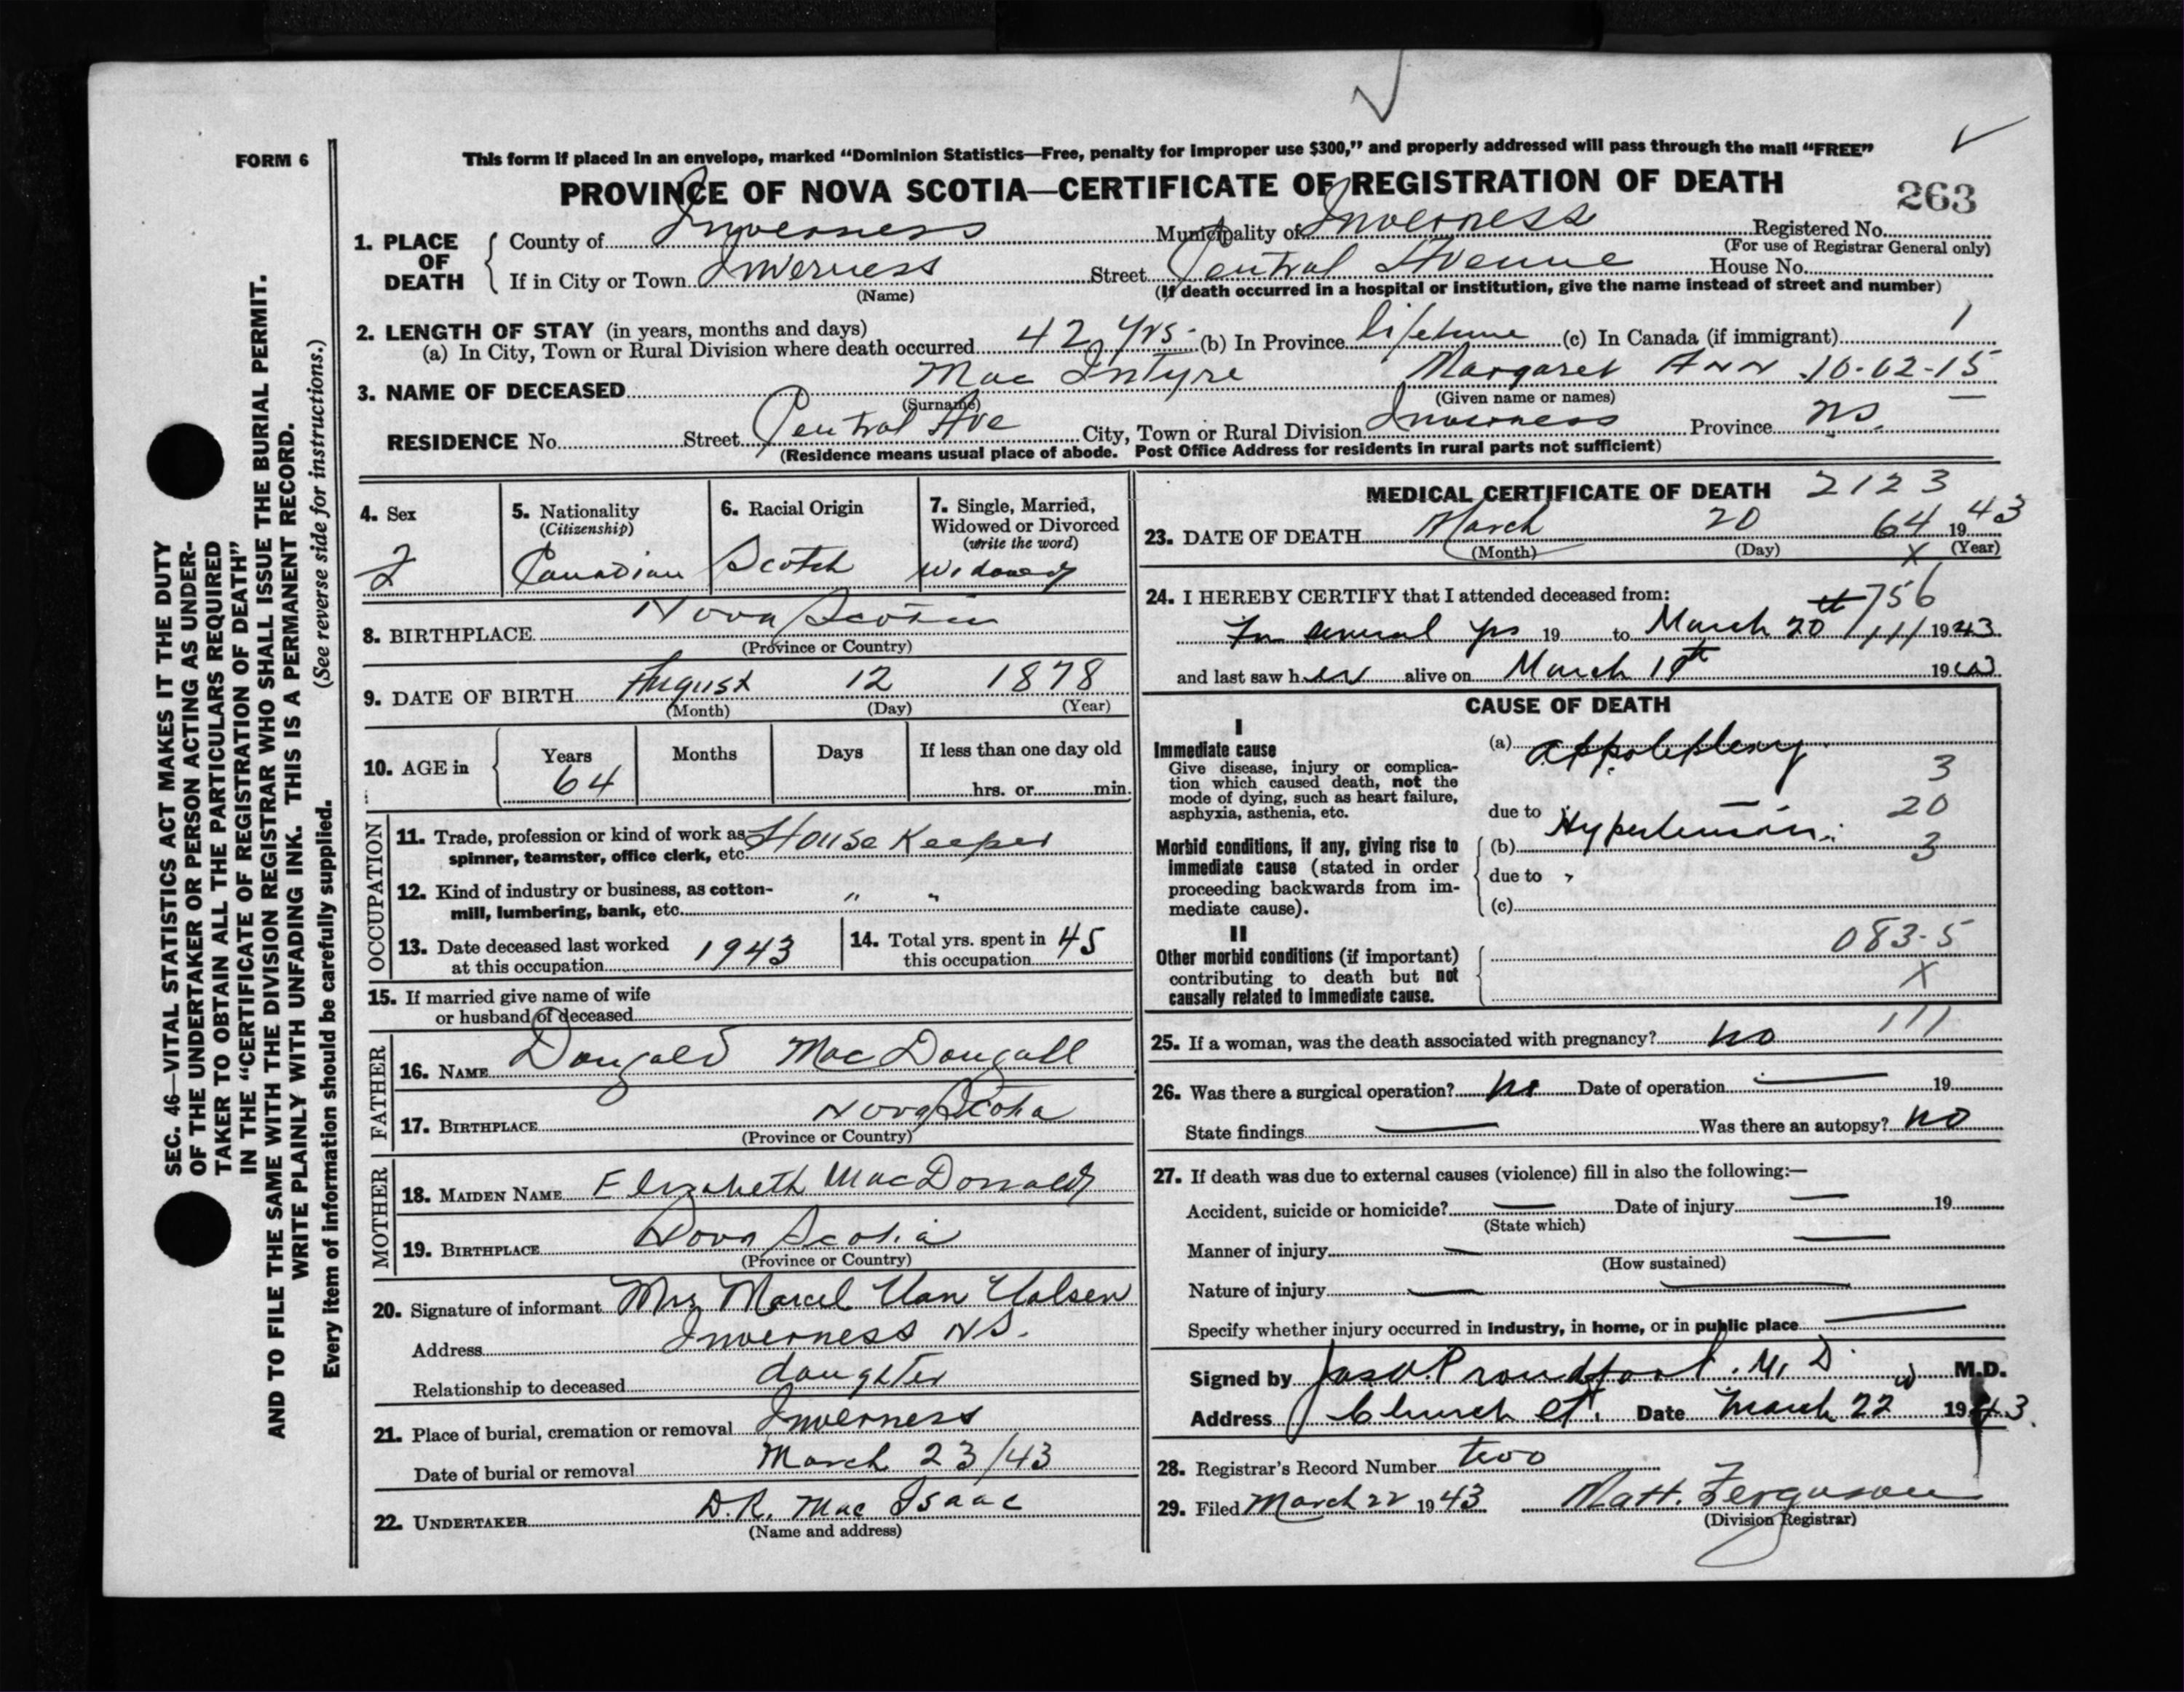 FORM 6
This form if placed in an envelope, marked “Dominion Statistics—Free, penalty for improper use $300,” and properly addressed will pass through the mail “FREE”
PROVINCE OF NOVA SCOTIA—CERTIFICATE OF REGISTRATION OF DEATH
263
1. PLACE OF DEATH
County of Inverness Municipality of Inverness Registered No.
(For use of Registrar General only)
If in City or Town Inverness Street Central Avenue House No.
(Name) (If death occurred in a hospital or institution, give the name instead of street and number)
2. LENGTH OF STAY (in years, months and days)
(a) In City, Town or Rural Division where death occurred 42 yrs. (b) In Province lifetime (c) In Canada (if immigrant) 1
3. NAME OF DECEASED Mac Intyre Margaret Ann 10-02-15
(Surname) (Given name or names)
RESIDENCE No. Street Central Ave City, Town or Rural Division Inverness Province N.S.
(Residence means usual place of abode. Post Office Address for residents in rural parts not sufficient)
4. Sex
5. Nationality
(Citizenship)
Canadian
6. Racial Origin
Scotch
7. Single, Married,
Widowed or Divorced
(write the word)
Widowed
8. BIRTHPLACE Nova Scotia
(Province or Country)
9. DATE OF BIRTH August 12 1878
(Month) (Day) (Year)
10. AGE in
Years Months Days If less than one day old
64
hrs. or min.
OCCUPATION
11. Trade, profession or kind of work as House Keeper
spinner, teamster, office clerk, etc.
12. Kind of industry or business, as cotton-
mill, lumbering, bank, etc. " "
13. Date deceased last worked
at this occupation 1943
14. Total yrs. spent in
this occupation 45
15. If married give name of wife
or husband of deceased
FATHER
16. NAME Dougald MacDougall
17. BIRTHPLACE Nova Scotia
(Province or Country)
MOTHER
18. MAIDEN NAME Elizabeth MacDonald
19. BIRTHPLACE Nova Scotia
(Province or Country)
20. Signature of informant Mrs Marcel Van
Address Inverness N.S.
Relationship to deceased daughter
21. Place of burial, cremation or removal Inverness
Date of burial or removal March 23/43
22. UNDERTAKER D.R. Mac Isaac
(Name and address)
MEDICAL CERTIFICATE OF DEATH 2123
23. DATE OF DEATH March 20 64 19 43
(Month) (Day) X (Year)
24. I HEREBY CERTIFY that I attended deceased from:
756
For several yrs 19 to March 20th 111 1943
and last saw her alive on March 19
CAUSE OF DEATH
I
Immediate cause
Give disease, injury or complica-
tion which caused death, not the
mode of dying, such as heart failure,
asphyxia, asthenia, etc.
(a)
3
20
due to
Morbid conditions, if any, giving rise to
immediate cause (stated in order
proceeding backwards from im-
mediate cause).
(b) Hypertension 3
due to "
(c)
II
Other morbid conditions (if important)
contributing to death but not
causally related to immediate cause.
083-5
X
25. If a woman, was the death associated with pregnancy? no 111
26. Was there a surgical operation? no Date of operation — 19
State findings — Was there an autopsy? no
27. If death was due to external causes (violence) fill in also the following:—
Accident, suicide or homicide? — Date of injury — 19
(State which)
Manner of injury —
(How sustained)
Nature of injury —
Specify whether injury occurred in industry, in home, or in public place —
Signed by Jas. A. Proudfoot. M.D. M.D.
Address Church St. Date March 22 1943.
28. Registrar's Record Number two
29. Filed March 22 1943 Matt. Ferguson
(Division Registrar)
SEC. 46—VITAL STATISTICS ACT MAKES IT THE DUTY
OF THE UNDERTAKER OR PERSON ACTING AS UNDER-
TAKER TO OBTAIN ALL THE PARTICULARS REQUIRED
IN THE “CERTIFICATE OF REGISTRATION OF DEATH”
AND TO FILE THE SAME WITH THE DIVISION REGISTRAR WHO SHALL ISSUE THE BURIAL PERMIT.
WRITE PLAINLY WITH UNFADING INK. THIS IS A PERMANENT RECORD.
Every item of information should be carefully supplied. (See reverse side for instructions.)